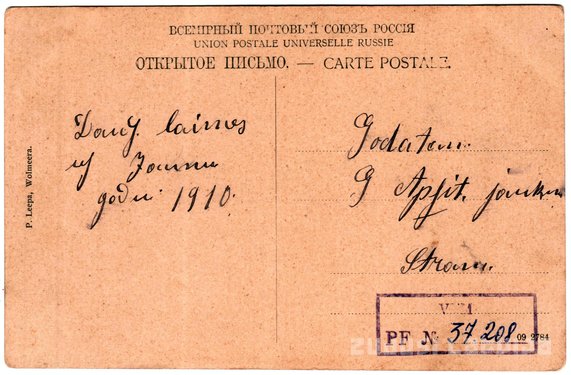 ВСЕМІРНЫЙ ПОЧТОВЫЙ СОЮЗЪ РОССІЯ
UNION POSTALE UNIVERSELLE RUSSIE
ОТКРЫТОЕ ПИСЬМО. — CARTE POSTALE.
Daudz laimes
uz Jaunu
gadu 1910.
Godatam
G Apsit. jaunk
P. Leepa, Wolmeera.
PF № 37 208
09 2784